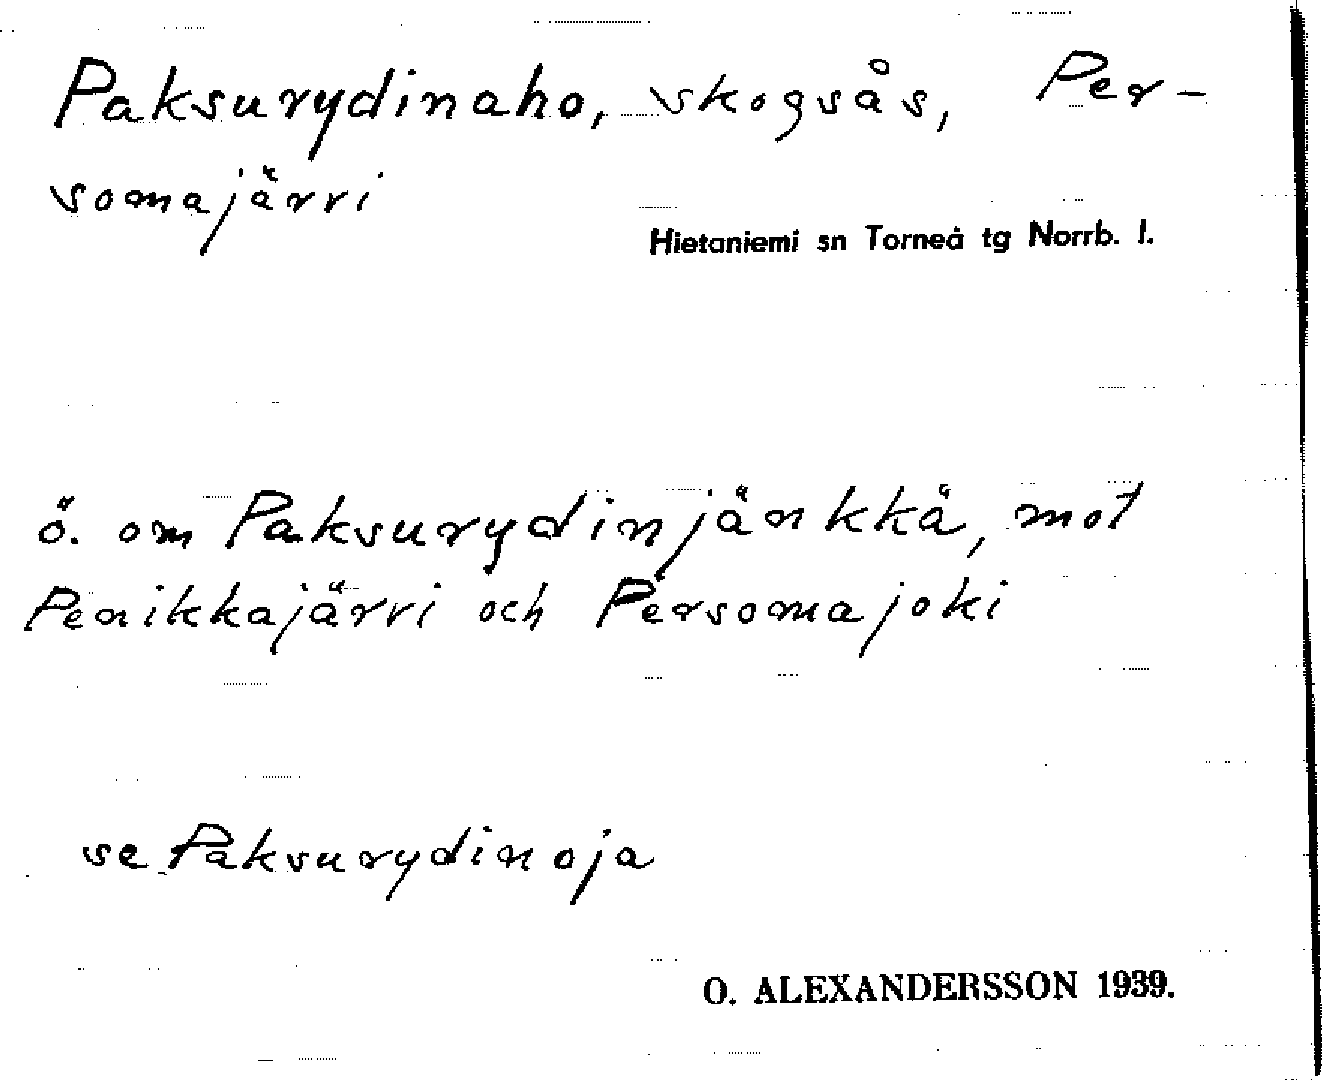 Paksurydinaho, skogsås, Per-
somajärvi
Hietaniemi sn Torneå tg Norrb. l.
ö. om Paksurydinjänkkä, mot
Penikkajärvi och Persomajoki
se Paksurydinoja
O. ALEXANDERSSON 1939.